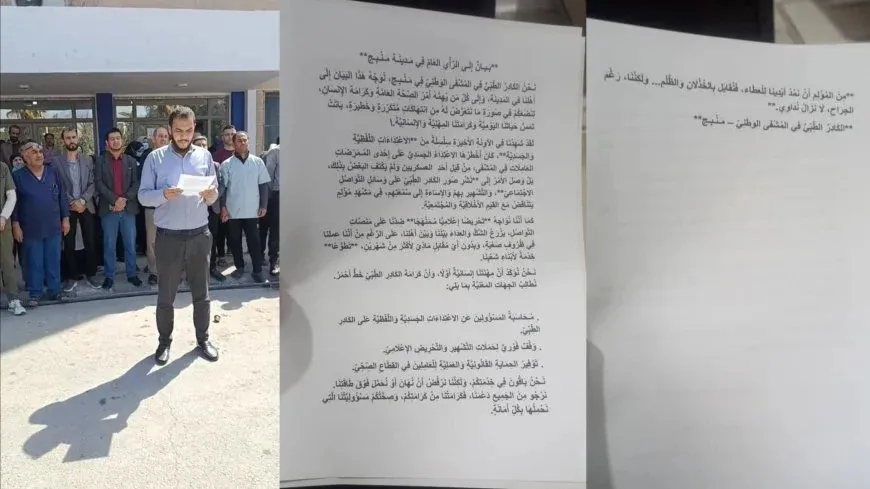 **بَيـانٌ إلـى الرَّأي العَامّ في مـدينـة، مـنْبـج**
نَحْنُ الكَادرُ الطِّبِّيّ في المَشْفى الوَطَنِيّ في مَنْبِـج، نُوَجِّهُ هَذَا البَيَانَ إِلَى
أَهْلِنَا فِي المَدِينَةِ، وَإِلَى كُلِّ مَنْ يَهُمُّهُ أَمْرُ الصِّحَّةِ العَامَّةِ وَكَرَامَةِ الإِنْسَانِ،
لِنَضَعَكُمْ فِي صُورَةِ مَا نَتَعَرَّضُ لَهُ مِنِ انْتِهَاكَاتٍ مُتَكَرِّرَةٍ وَخَطِيرَةٍ، بَاتَتْ
تَمَسُّ حَيَاتَنَا اليَوْمِيَّةَ وَكَرَامَتَنَا المِهَنِيَّةَ وَالإِنْسَانِيَّةَ.\
لَقَدْ شَهِدْنَا فِي الآوِنَةِ الأَخِيرَةِ سِلْسِلَةً مِنَ **الاعْتِدَاءَاتِ اللَّفْظِيَّةِ
وَالجَسَدِيَّةِ**، كَانَ أَخْطَرُهَا الاعْتِدَاءُ الجَسَدِيُّ عَلَى إِحْدَى المُمَرِّضَاتِ
العَامِلَاتِ فِي المَشْفَى، مِنْ قِبَلِ أَحَدِ العَسْكَرِيِّينَ وَلَمْ يَكْتَفِ البَعْضُ بِذَلِكَ،
بَلْ وَصَلَ الأَمْرُ إِلَى **نَشْرِ صُوَرِ الكَادِرِ الطِّبِّيِّ عَلَى وَسَائِلِ التَّوَاصُلِ
الاجْتِمَاعِيِّ**، وَالتَّشْهِيرِ بِهِمْ وَالإِسَاءَةِ إِلَى سُمْعَتِهِمْ، فِي مَشْهَدٍ مُؤْلِمٍ
يَتَنَاقَضُ مَعَ القِيَمِ الأَخْلَاقِيَّةِ وَالمُجْتَمَعِيَّةِ.
كَمَا أَنَّنَا نُوَاجِهُ **تَحْرِيضًا إِعْلَامِيًّا مُمَنْهَجًا** ضِدَّنَا عَلَى مَنَصَّاتِ
التَّوَاصُلِ، يَزْرَعُ الشَّكَّ وَالعِدَاءَ بَيْنَنَا وَبَيْنَ أَهْلِنَا، عَلَى الرَّغْمِ مِنْ أَنَّنَا عَمِلْنَا
فِي ظُرُوفٍ صَعْبَةٍ، وَبِدُونِ أَيِّ مُقَابِلٍ مَادِّيٍّ لِأَكْثَرَ مِنْ شَهْرَيْنِ، **تَطَوُّعًا**
خِدْمَةً لِأَبْنَاءِ شَعْبِنَا.
نَحْنُ نُؤَكِّدُ أَنَّ مِهْنَتَنَا إِنْسَانِيَّةٌ أَوَّلًا، وَأَنَّ كَرَامَةَ الكَادِرِ الطِّبِّيِّ خَطٌّ أَحْمَرُ.
نُطَالِبُ الجِهَاتِ المَعْنِيَّةَ بِمَا يَلِي:
. مُحَاسَبَةُ المَسْؤُولِينَ عَنِ الاعْتِدَاءَاتِ الجَسَدِيَّةِ وَاللَّفْظِيَّةِ عَلَى الكَادِرِ
الطِّبِّيِّ.
. وَقْفٌ فَوْرِيٌّ لِحَمَلَاتِ التَّشْهِيرِ وَالتَّحْرِيضِ الإِعْلَامِيِّ.
. تَوْفِيرُ الحِمَايَةِ القَانُونِيَّةِ وَالعَمَلِيَّةِ لِلْعَامِلِينَ فِي القِطَاعِ الصِّحِّيِّ.
نَحْنُ بَاقُونَ فِي خِدْمَتِكُمْ، وَلَكِنَّنَا نَرْفُضُ أَنْ نُهَانَ أَوْ نُحَمَّلَ فَوْقَ طَاقَتِنَا.
نَرْجُو مِنَ الجَمِيعِ دَعْمَنَا، فَكَرَامَتُنَا مِنْ كَرَامَتِكُمْ، وَصِحَّتُكُمْ مَسْؤُولِيَّتُنَا الَّتِي
نَحْمِلُهَا بِكُلِّ أَمَانَةٍ.
**مِنَ المُؤْلِمِ أَنْ نَمُدَّ أَيْدِيَنَا لِلْعَطَاءِ، فَنُقَابَلَ بِالخُذْلَانِ وَالظُّلْمِ... وَلَكِنَّنَا، رَغْمَ
الجِرَاحِ، لَا نَزَالُ نُدَاوِي.**
**الكَادِرُ الطِّبِّيُّ فِي المَشْفَى الوَطَنِيِّ – مَنْبِـج**